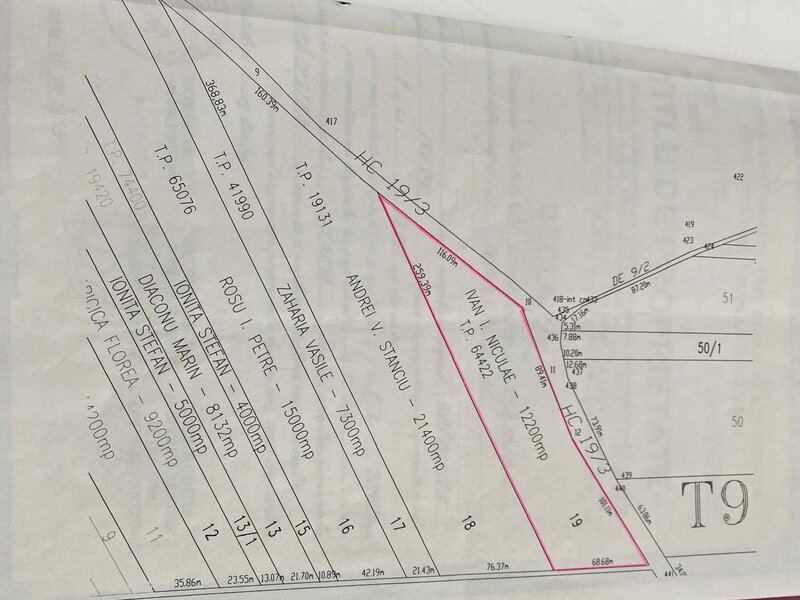 368.83m
9
160.39m
417
HC 19/3
422
419
423
424
DE 9/2
87.20m
T.P. 74400
T.P. 65076
T.P. 41990
T.P. 19131
19420
116.09m
259.39m
10
418-int cn433
435
434
17.16m
5.31m
436
7.88m
10.20m
12.68m
437
438
51
50/1
50
89.41m
11
12
HC 19/3
73.91m
439
440
63.86m
101.11m
T9
FLOREA - 9200mp
IONITA STEFAN - 5000mp
DIACONU MARIN - 8132mp
IONITA STEFAN - 4000mp
ROSU I. PETRE - 15000mp
ZAHARIA VASILE - 7300mp
ANDREI V. STANCIU - 21400mp
IVAN I. NICULAE - 12200mp
T.P. 64422
200mp
9
11
12
13/1
13
15
16
17
18
19
35.86m
23.55m
13.07m
21.70m
10.89m
42.19m
21.43m
76.37m
68.68m